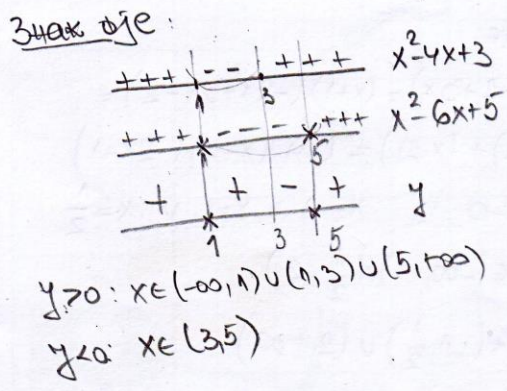 Знак ф-је:
+ + + - - + + + x²-4x+3
1 3
+ + + - - - + + + x²-6x+5
5
+ + - + y
1 3 5
y>0: x∈(-∞,1)∪(1,3)∪(5,+∞)
y<0: x∈(3,5)